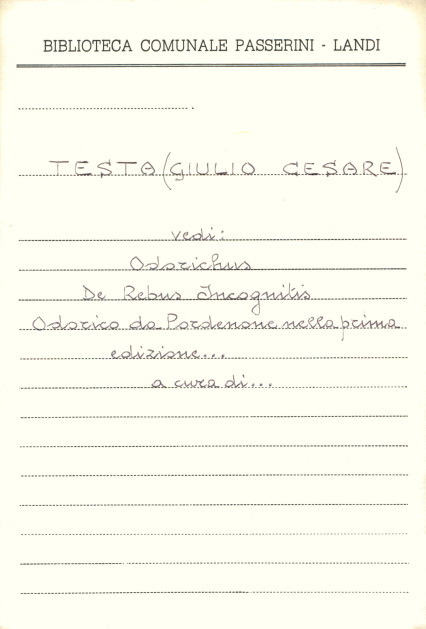 BIBLIOTECA COMUNALE PASSERINI - LANDI
TESTA (GIULIO CESARE)
vedi:
Odorichus
De Rebus Incognitis
Odorico da Pordenone nella prima
edizione...
a cura di...